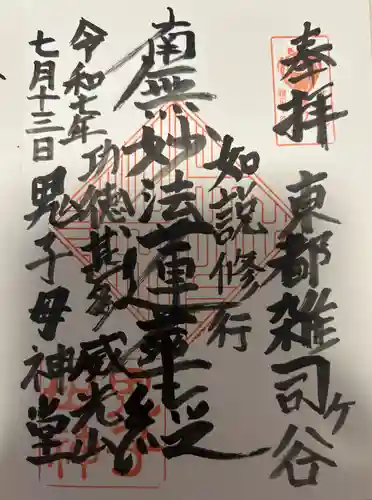 奉拝
東都雑司ケ谷
如説修行
南無妙法蓮華経
功徳甚多
威光山
令和七年
七月十三日
鬼子母神堂